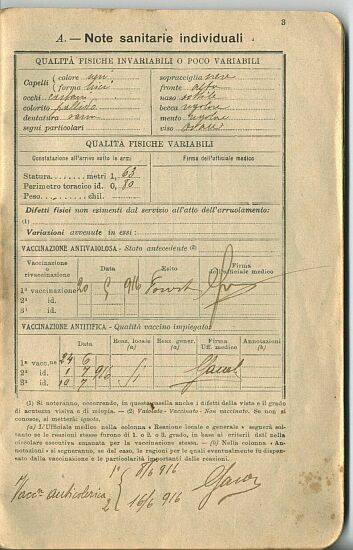 3
A. — Note sanitarie individuali
QUALITÀ FISICHE INVARIABILI O POCO VARIABILI
Capelli { colore neri sopracciglia nere
forma lisci fronte alta
occhi castani naso
colorito pallido bocca regolare
dentatura sana mento regolare
segni particolari viso ovale
QUALITÀ FISICHE VARIABILI
Constatazione all'arrivo sotto le armi Firma dell'ufficiale medico
Statura....... metri 1, 63
Perimetro toracico id. 0, 80
Peso...... chil.
Difetti fisici non esimenti dal servizio all'atto dell'arruolamento:
(1)
Variazioni avvenute in essi:
VACCINAZIONE ANTIVAIOLOSA - Stato antecedente (2)
Vaccinazione o rivaccinazione Data Esito Firma dell'ufficiale medico
1ª vaccinazione 20 5 916
2ª id.
VACCINAZIONE ANTITIFICA - Qualità vaccino impiegato
Data Reaz. locale (a) Reaz. gener. (a) Firma Uff. medico Annotazioni (b)
1ª vacc.ne 24 6
2ª id. 1 7 916 si
3ª id. 10 7
(1) Si noteranno, occorrendo, in questa casella anche i difetti della vista e il grado
di acutezza visiva e di miopia. — (2) Vaiolato - Vaccinato - Non vaccinato. Se non si
conosce, si metterà: ignoto.
(a) L'Ufficiale medico nella colonna « Reazione locale e generale » segnerà soltanto
se le reazioni stesse furono di 1. o 2. o 3. grado, in base ai criteri dati nella
circolare esecutiva emanata per la vaccinazione stessa. — (b) Nella colonna « Annotazioni »
si segneranno, se del caso, le ragioni per le quali eventualmente fu dispensato
dalla vaccinazione e le particolarità importanti delle reazioni.
1ª 8/6 916
Vacc. anticolerica
2 16/6 916